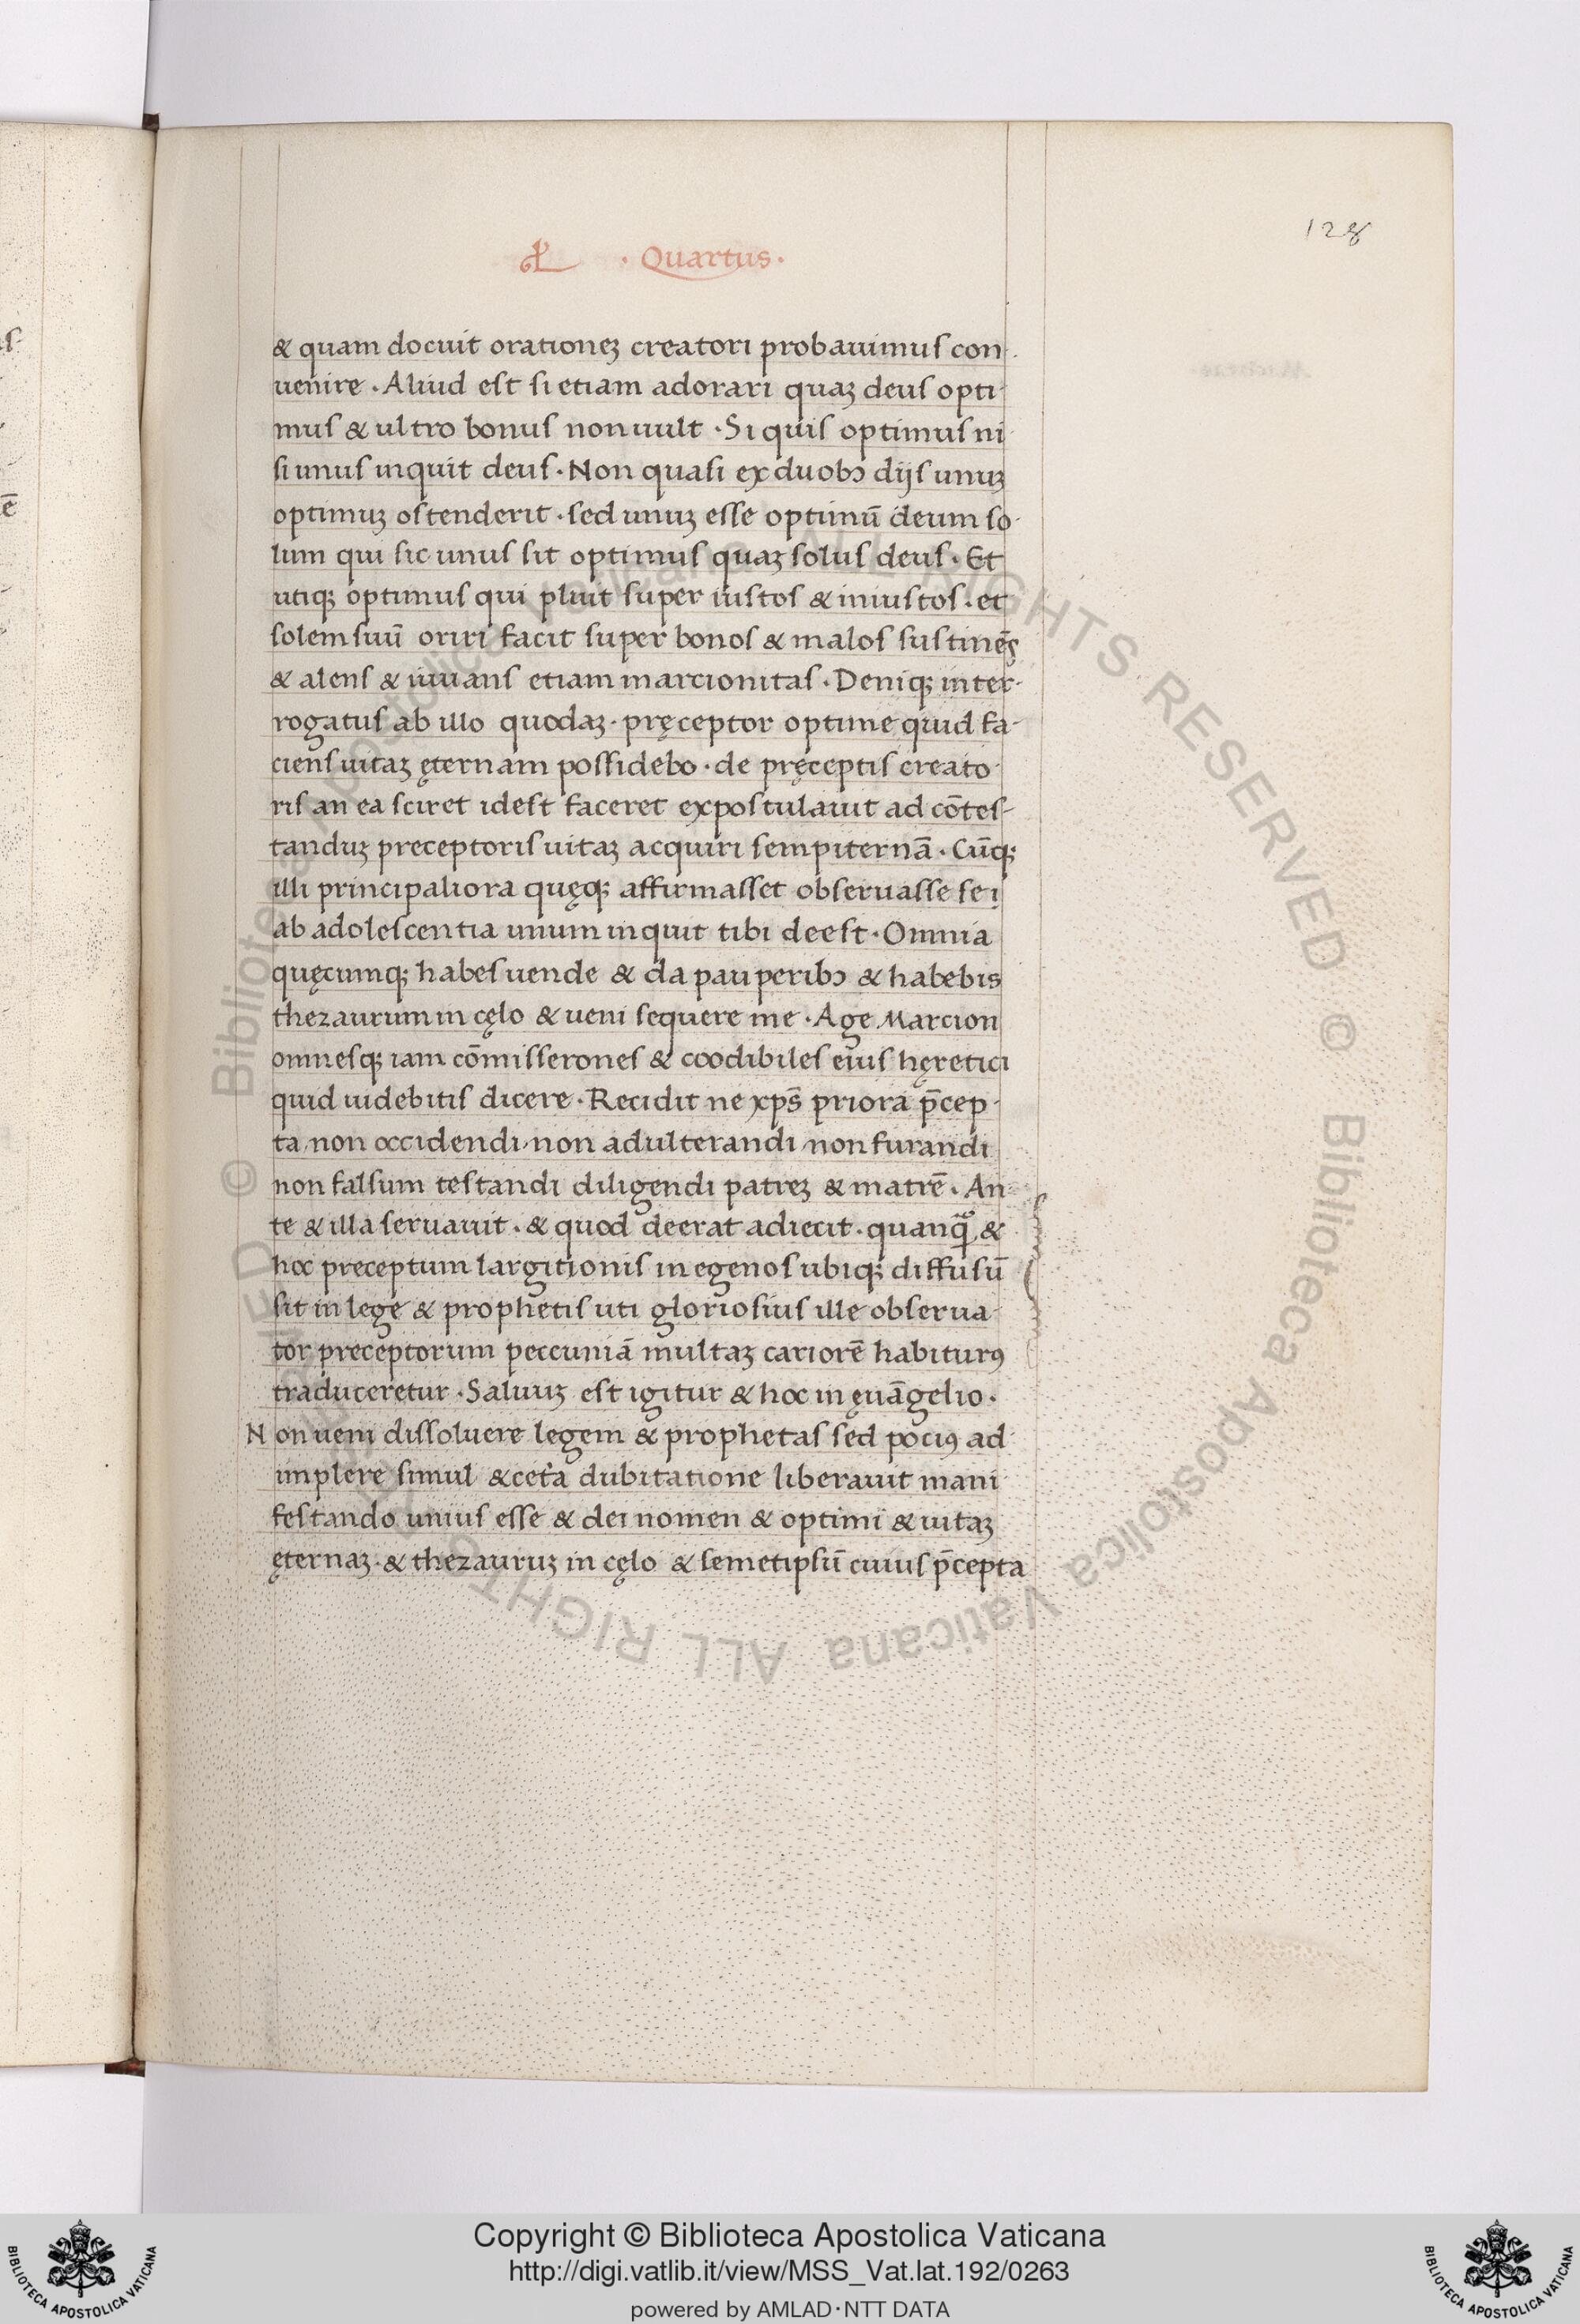 128
· Quartus ·
& quam docuit orationeꝫ creatori probauimus con-
uenire · Aliud est si etiam adorari quaꝫ deus opti-
mus & ultro bonus non uult · Si quis optimus ni-
si unus inquit deus · Non quasi ex duobꝰ dijs unuꝫ
optimuꝫ ostenderit · sed unuꝫ esse optimū deum so-
lum qui sic unus sit optimus quaꝫ solus deus · Et
utiqꝫ optimus qui pluit super iustos & iniustos · et
solem suū oriri facit super bonos & malos sustinēs
& alens & iuuans etiam marcionitas · Deniqꝫ inter-
rogatus ab illo quodaꝫ · pręceptor optime quid fa-
ciens uitaꝫ ęternam possidebo · de pręceptis creato-
ris an ea sciret idest faceret expostulauit ad cōtes-
tanduꝫ preceptoris uitaꝫ acquiri sempiternā · Cūqꝫ
illi principaliora quęqꝫ affirmasset obseruasse se
ab adolescentia unum inquit tibi deest · Omnia
quęcumqꝫ habes uende & da pauperibꝰ & habebis
thezaurum in cęlo & ueni sequere me · Age Marcion
omnesqꝫ iam cōmisserones & coodibiles eius hęretici
quid uidebitis dicere · Recidit ne xp̄s priora p̄cep-
ta non occidendi · non adulterandi non furandi
non falsum testandi diligendi patreꝫ & matrē · An-
te & illa seruauit · & quod deerat adiecit · quanqͣꝫ &
hoc preceptum largitionis in egenos ubiqꝫ diffusū
sit in lege & prophetis uti gloriosius ille obserua-
tor preceptorum peccuniā multaꝫ cariorē habiturꝰ
traduceretur · Saluuꝫ est igitur & hoc in ęuāgelio ·
Non ueni dissoluere legem & prophetas sed pociꝰ ad-
implere simul & cet̾a dubitatione liberauit mani-
festando unius esse & dei nomen & optimi & uitaꝫ
ęternaꝫ · & thezauruꝫ in cęlo & semetipsū cuius p̄cepta
© Biblioteca Apostolica Vaticana ALL RIGHTS RESERVED © Biblioteca Apostolica Vaticana ALL RIGHTS RESERVED
Copyright © Biblioteca Apostolica Vaticana
http://digi.vatlib.it/view/MSS_Vat.lat.192/0263
powered by AMLAD·NTT DATA
BIBLIOTECA APOSTOLICA VATICANA
BIBLIOTECA APOSTOLICA VATICANA